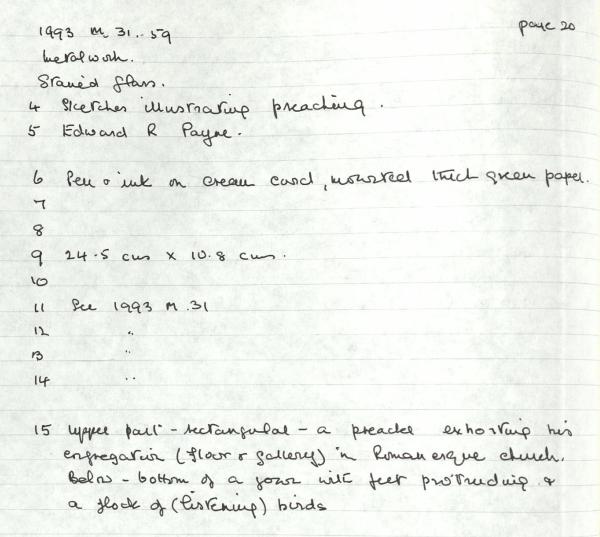 1993 M. 31..59 page 20
Metalwork.
Stained Glass.
4 Sketches illustrating preaching.
5 Edward R Payne.
6 Pen & ink on cream card, mounted thick green paper.
7
8
9 24.5 cms x 10.8 cms.
10
11 See 1993 M.31
12 "
13 "
14 "
15 Upper part - rectangular - a preacher exhorting his
congregation (floor & gallery) in Romanesque church.
Below - bottom of a gown with feet protruding &
a flock of (listening) birds